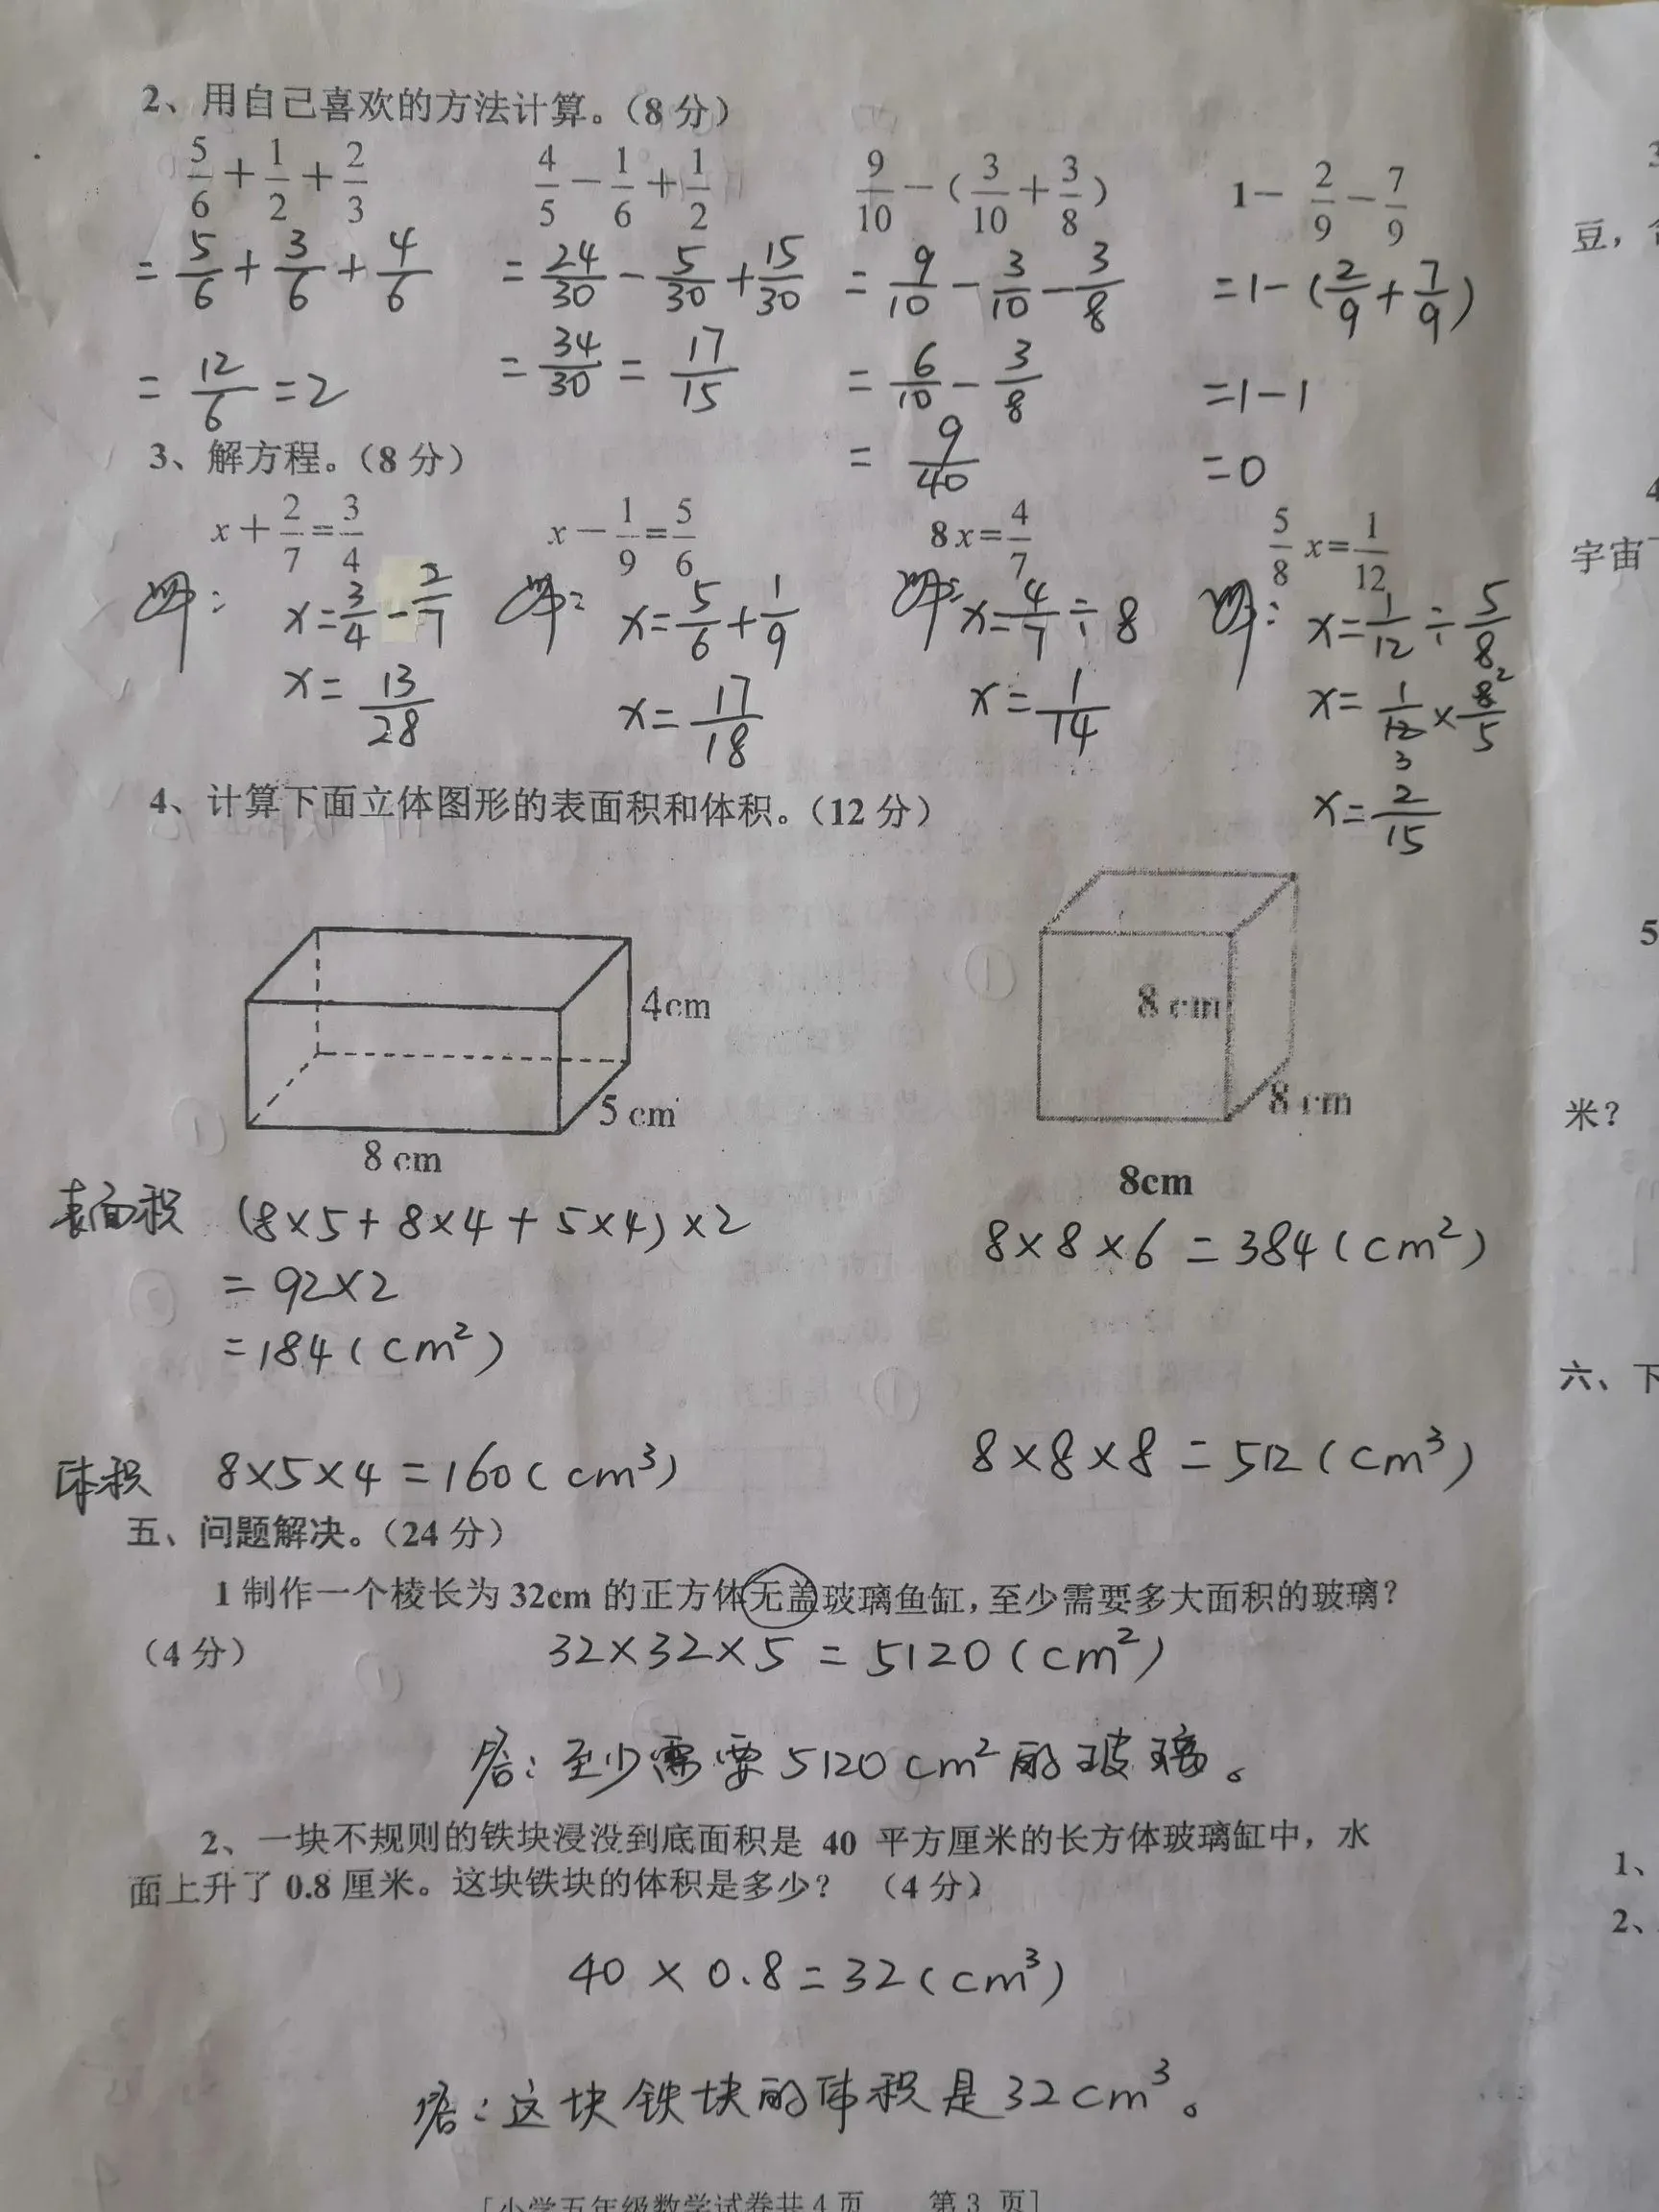 2、用自己喜欢的方法计算。（8分）
5/6＋1/2＋2/3 4/5－1/6＋1/2 9/10－（3/10＋3/8） 1－2/9－7/9
=5/6+3/6+4/6 =24/30-5/30+15/30 =9/10-3/10-3/8 =1-(2/9+7/9)
=12/6=2 =34/30=17/15 =6/10-3/8 =1-1
=9/40 =0
3、解方程。（8分）
x＋2/7=3/4 x－1/9=5/6 8x=4/7 5/8x=1/12
解: x=3/4-2/7 解: x=5/6+1/9 解: x=4/7÷8 解: x=1/12÷5/8
x=13/28 x=17/18 x=1/14 x=1/12×8/5
3 2
x=2/15
4、计算下面立体图形的表面积和体积。（12分）
4cm
5 cm
8 cm
8 cm
8 cm
8cm
表面积 (8×5+8×4+5×4)×2
=92×2
=184(cm²)
8×8×6=384(cm²)
体积 8×5×4=160(cm³)
8×8×8=512(cm³)
五、问题解决。（24分）
1 制作一个棱长为 32cm 的正方体无盖玻璃鱼缸，至少需要多大面积的玻璃？
（4分） 32×32×5=5120(cm²)
答:至少需要5120cm²的玻璃。
2、一块不规则的铁块浸没到底面积是 40 平方厘米的长方体玻璃缸中，水
面上升了 0.8 厘米。这块铁块的体积是多少？（4分）
40×0.8=32(cm³)
答:这块铁块的体积是32cm³。
[小学五年级数学试卷共4页 第3页]
豆，
宇宙
5
米？
六、下
1、
2、